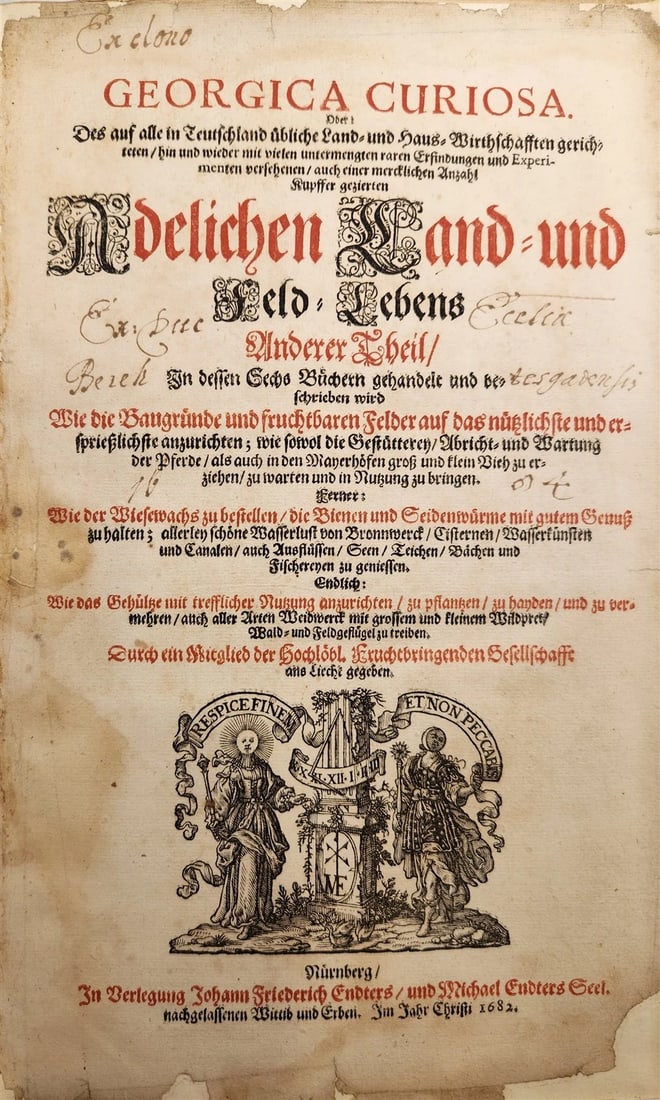 Ex dono
GEORGICA CURIOSA.
Oder:
Des auf alle in Teutschland übliche Land- und Haus-Wirthschafften gerich-
teten / hin und wieder mit vielen untermengten raren Erfindungen und Experi-
menten versehenen / auch einer mercklichen Anzahl
Kupffer gezierten
Adelichen Land- und
Feld-Lebens
Ex
Anderer Theil /
Berch
In dessen Sechs Büchern gehandelt und be-
tesgadensis
schrieben wird
Wie die Baugründe und fruchtbaren Felder auf das nützlichste und er-
sprießlichste anzurichten; wie sowol die Gestütterey / Abricht- und Wartung
der Pferde / als auch in den Mayerhöfen groß und klein Vieh zu er-
ziehen / zu warten und in Nutzung zu bringen.
16 84
Ferner:
Wie der Wiesewachs zu bestellen / die Bienen und Seidenwürme mit gutem Genuß
zu halten; allerley schöne Wasserlust von Bronnwerck / Cisternen / Wasserkünsten
und Canalen / auch Ausflüssen / Seen / Teichen / Bächen und
Fischereyen zu geniessen.
Endlich:
Wie das Gehültze mit trefflicher Nutzung anzurichten / zu pflantzen / zu hayden / und zu ver-
mehren / auch aller Arten Weidwerck mit grossem und kleinem Wildpret /
Wald- und Feldgeflügel zu treiben.
Durch ein Mitglied der Hochlöbl. Fruchtbringenden Gesellschafft
ans Liecht gegeben.
RESPICE FINEM
ET NON PECCABIS
XII I II III
Nürnberg /
In Verlegung Johann Friederich Endters / und Michael Endters Seel.
nachgelassenen Wittib und Erben. Im Jahr Christi 1682.